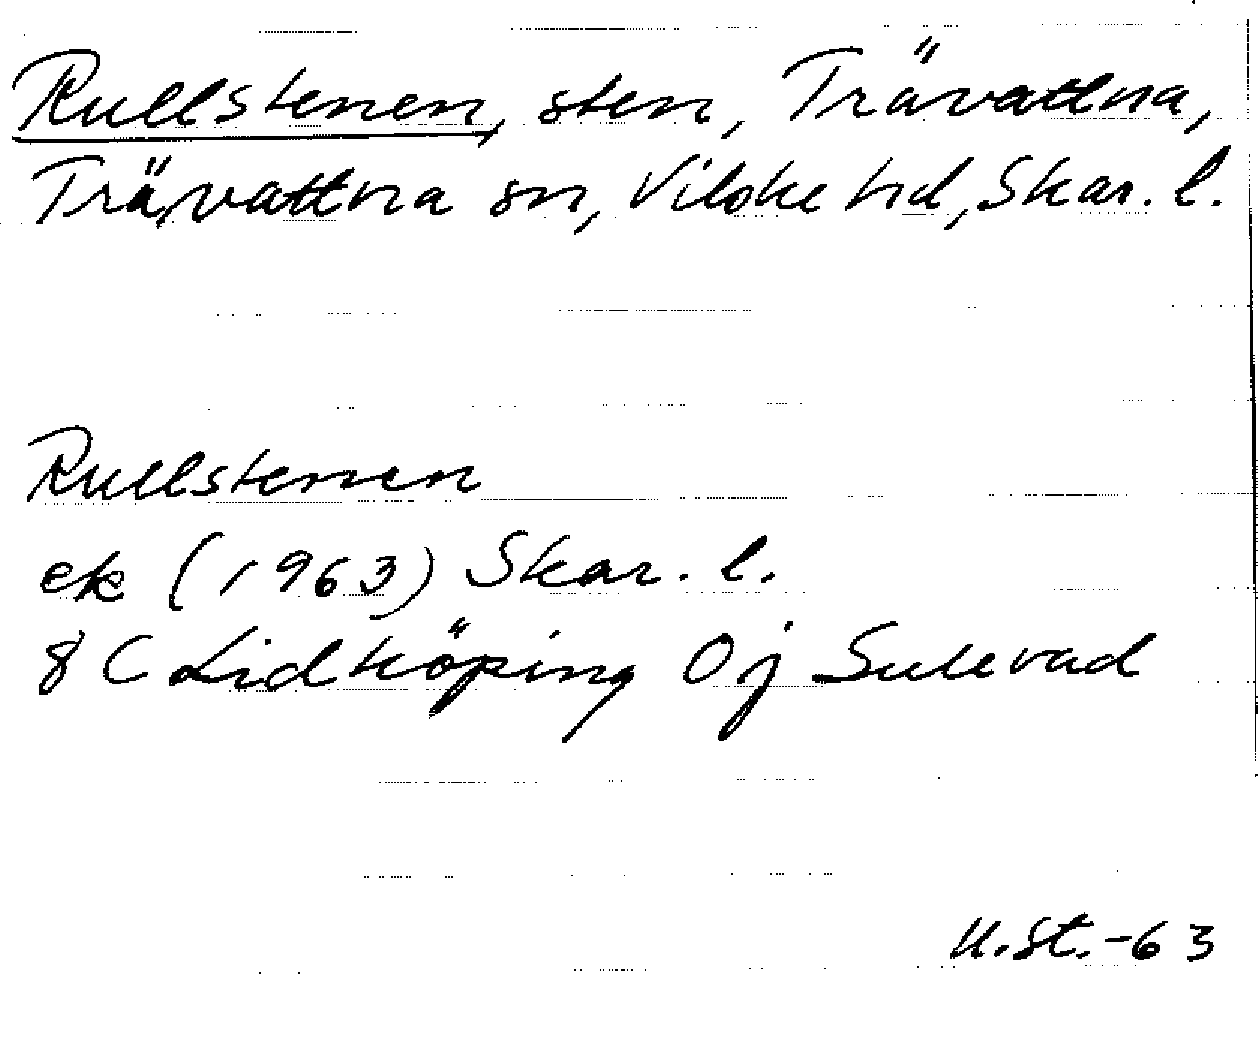 Rullstenen, sten, Trävattna,
Trävattna sn, Vilske hd, Skar. l.
Rullstenen
ek (1963) Skar. l.
8 C Lidköping 0j Sulevad
U.St.-63